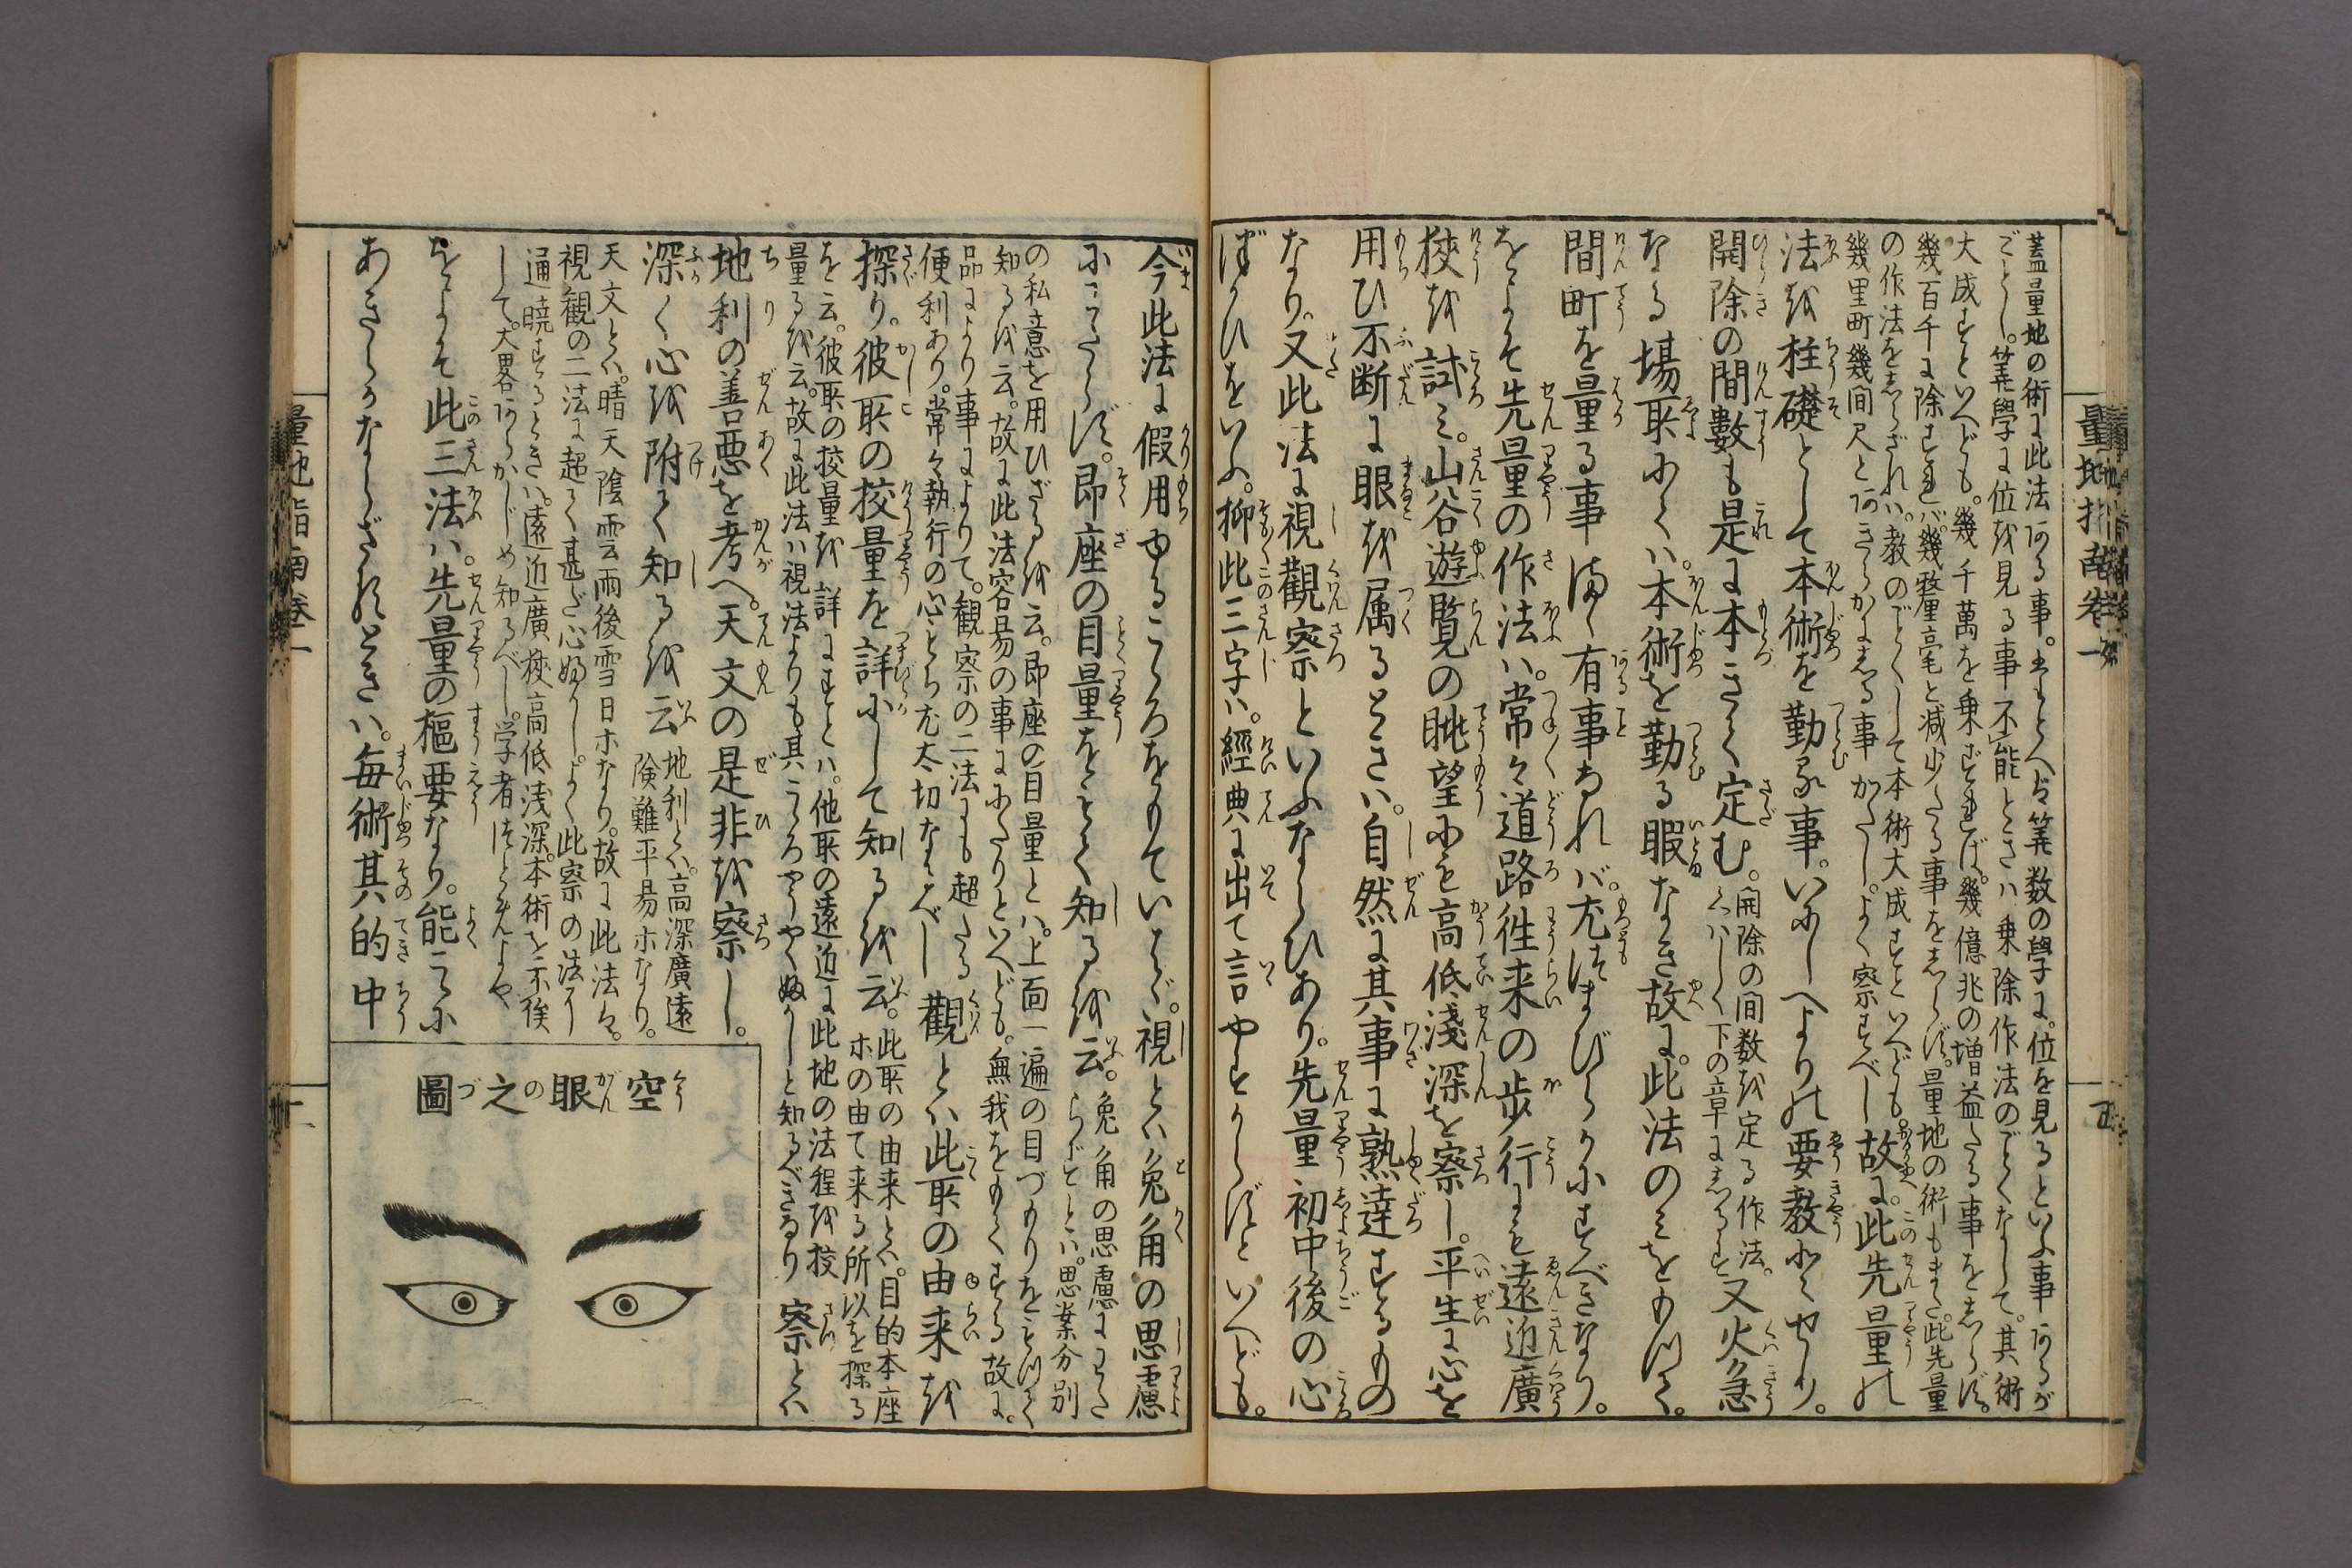 蓋量地の術に此法ある事。たとへば筭数の學に。位を見るといふ事あるが
ごとし。筭學に位を見る事不能ときハ乗除作法のごとくなして。其術
大成すといへども。幾千萬を乗ずれば。幾億兆の増益たる事をしらず。
幾百千に除すれバ。幾釐毫と減少たる事をしらず。量地の術もまた。此先量
の作法をしらざれハ。教のごとくして本術大成すといへども。
幾里町幾間尺とあきらかにしる事かたし。よく察すべし故に。此先量の
法を柱礎として本術を勤る事。いにしへよりの要教とせり。
開除の間數も是に本きて定む。開除の間数を定る作法。
くハしく下の章にしるす又火急
なる場所にてハ。本術を勤る暇なき故に。此法のミをもつて。
間町を量る事まゝ有事なれバ。尤つまびらかにすべきなり。
をよそ先量の作法ハ。常々道路徃来の歩行にも遠近廣
狹を試ミ。山谷遊覧の眺望にも高低淺深を察し。平生に心を
用ひ不断に眼を属るときハ。自然に其事に熟達するもの
なり。又此法に視觀察といふならひあり。先量初中後の心
ばへをいふ。抑此三字ハ。經典に出て言やすからずといへども。
量地指南卷一
今此法に假用ゆるこゝろをもていはゞ。視とハ兔角の思慮
にわたらず。即座の目量をもて知るを云。兔角の思慮にわた
らずとハ。思案分別
の私意を用ひざるを云。即座の目量とハ。上面一遍の目づもりをもつて
知るを云。故に此法容易の事にあたりといへども。無我をもてする故に。
品により事によりて。觀察の二法にも超たる
便利あり。常々執行の心もち尤大切なるべし觀とハ此所の由来を
探り。彼所の挍量を詳にして知るを云。此所の由来とハ。目的本座
ホの由て来る所以を探る
を云。彼所の挍量を詳にすとハ。他所の遠近に此地の法程を挍
量るを云。故に此法ハ視法よりも其こゝろやうやくふかしと知るべきなり察とハ
地利の善悪を考へ。天文の是非を察し。
深く心を附て知るを云地利とハ。高深廣遠
險難平易ホなり。
天文とハ。晴天陰雲雨後雪日ホなり。故に此法ハ。
視觀の二法に超て甚だ心ふかし。よく此察の法に
通曉するときハ。遠近廣狹高低浅深。本術を不俟
して。大畧あらかじめ知るべし。学者つとめよや
をよそ此三法ハ。先量の樞要なり。能こゝに
あきらかならざれハときハ。毎術其的中
空眼之圖
量地指南卷一